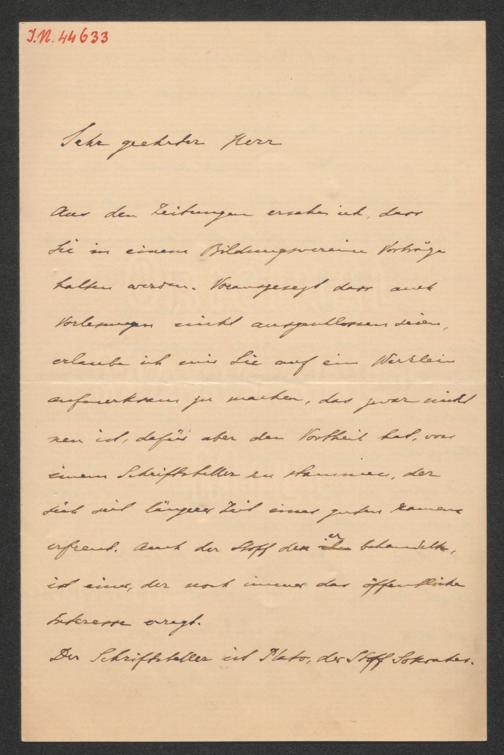 I.N. 44633
Sehr geehrter Herr
Aus den Zeitungen ersehe ich, dass
Sie in einem Bildungsvereine Vorträge
halten werden. Vorausgesezt dass auch
Vorlesungen nicht ausgeschlossen seien,
erlaube ich mir Sie auf ein Werklein
aufmerksam zu machen, das zwar nicht
neu ist, dafür aber den Vortheil hat, von
einem Schriftsteller zu stammen, der
sich seit längerer Zeit eines guten Namens
erfreut. Auch der Stoff den er behandelte,
ist einer, der noch immer das öffentliche
Interesse erregt.
Der Schriftsteller ist Plato, der Stoff Sokrates.